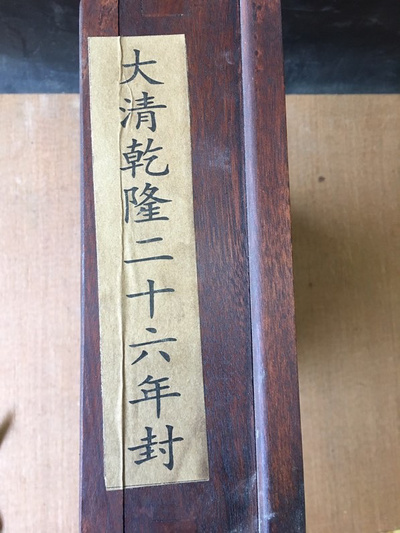 大清乾隆二十六年封